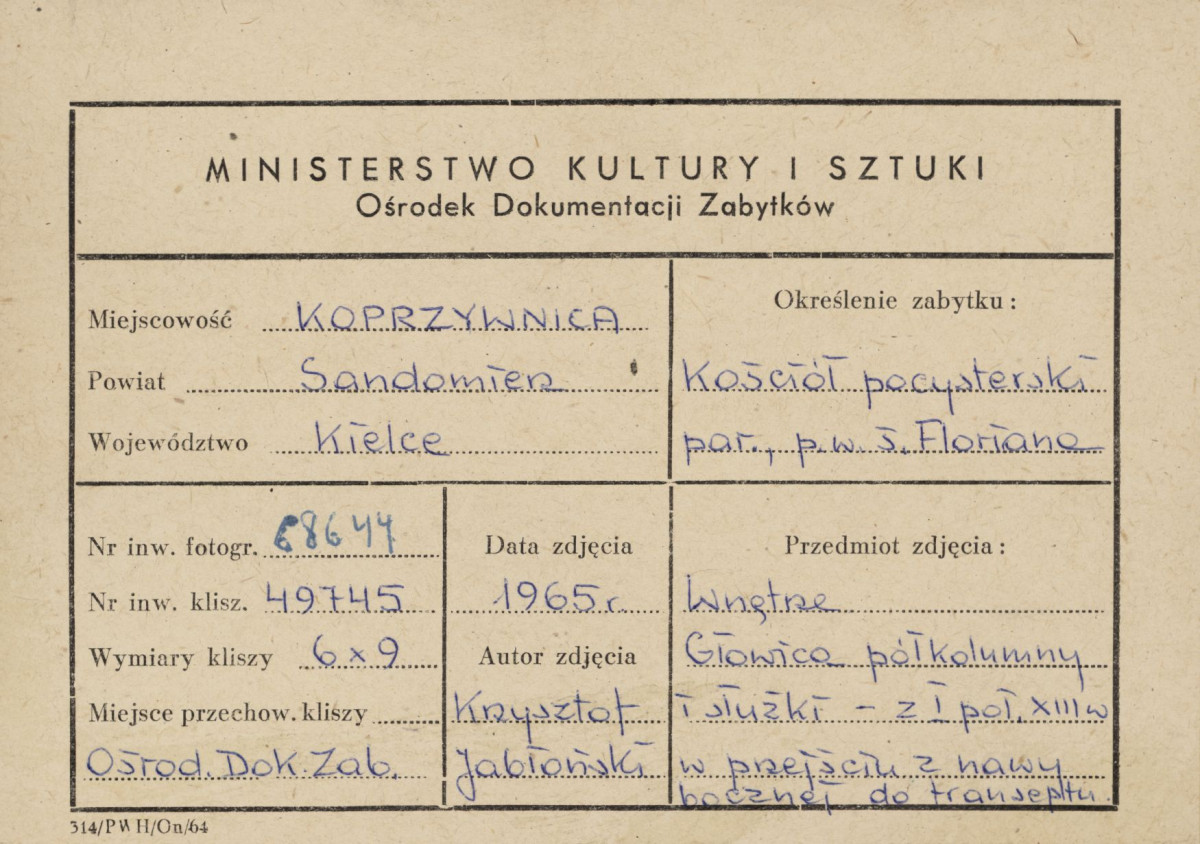 MINISTERSTWO KULTURY I SZTUKI
Ośrodek Dokumentacji Zabytków
Miejscowość KOPRZYWNICA
Powiat Sandomierz
Województwo Kielce
Określenie zabytku:
Kościół pocysterski
par., p.w. ś. Floriana
Nr inw. fotogr. 68644
Nr inw. klisz. 49745
Wymiary kliszy 6 x 9
Miejsce przechow. kliszy
Ośrod. Dok. Zab.
Data zdjęcia
1965 r.
Autor zdjęcia
Krzysztof
Jabłoński
Przedmiot zdjęcia:
Wnętrze
Głowica półkolumny
i służki – z I poł. XIII w
w przejściu z nawy
bocznej do transeptu
314/PWH/On/64